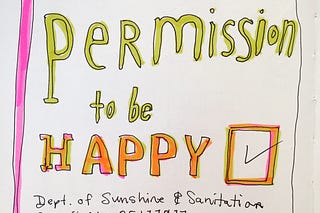 permission
to be
HAPPY
Dept. of Sunshine & Sanitation